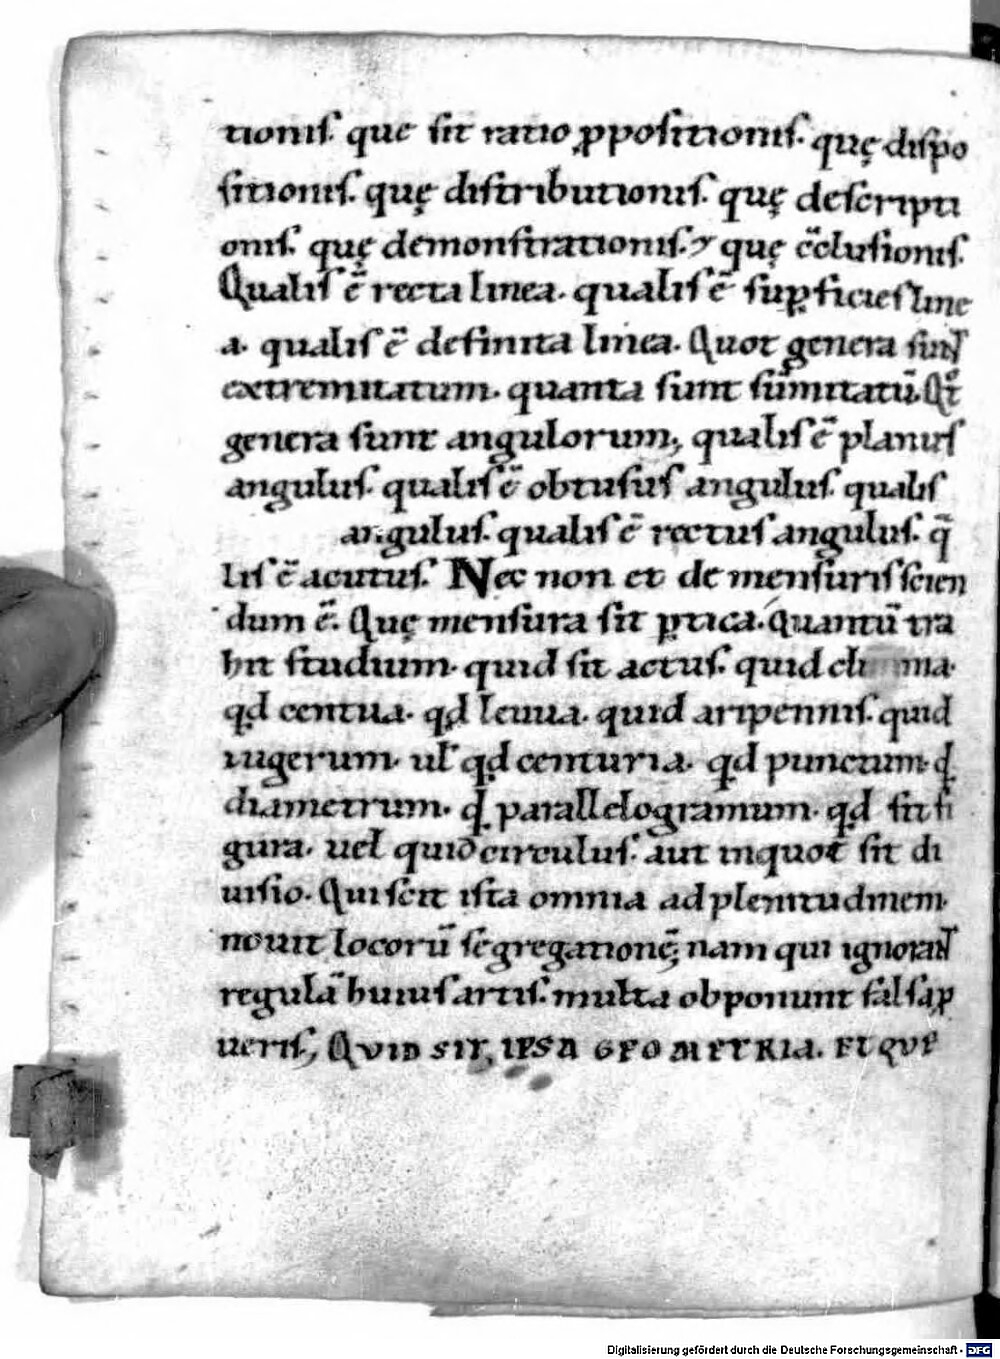 tionis. que sit ratio ꝓpositionis. quę dispo
sitionis. quę distributionis. quę descripti
onis. quę demonstrationis. ⁊ quę c̄clusionis.
Qualis ē recta linea. qualis ē suꝑficies line
a. qualis ē definita linea. Quot genera sunt
extremitatum. quanta sunt sūmitatū. Qt̊
genera sunt angulorum, qualis ē planus
angulus. qualis ē obtusus angulus. qualis
angulus. qualis ē rectus angulus. q̄
lis ē acutus. Nec non et de mensuris scien
dum ē. Quę mensura sit ꝑtica. Quantū tra
hit studium. quid sit actus. quid clima.
qd centua. qd leuua. quid aripennis. quid
iugerum. ul̄ qd centuria. qd punctum. q̣
diametrum. q̣ parallelogramum. qd sit fi
gura. uel quid circulus. aut inquot sit di
uisio. Qui scit ista omnia ad plenitudinem.
nouit locorū segregationē; nam qui ignorant
regulā huius artis. multa obponunt falsa ꝓ
ueris, QVID SIT, IPSA GEOMETRIA. ET QVE
Digitalisierung gefördert durch die Deutsche Forschungsgemeinschaft - DFG